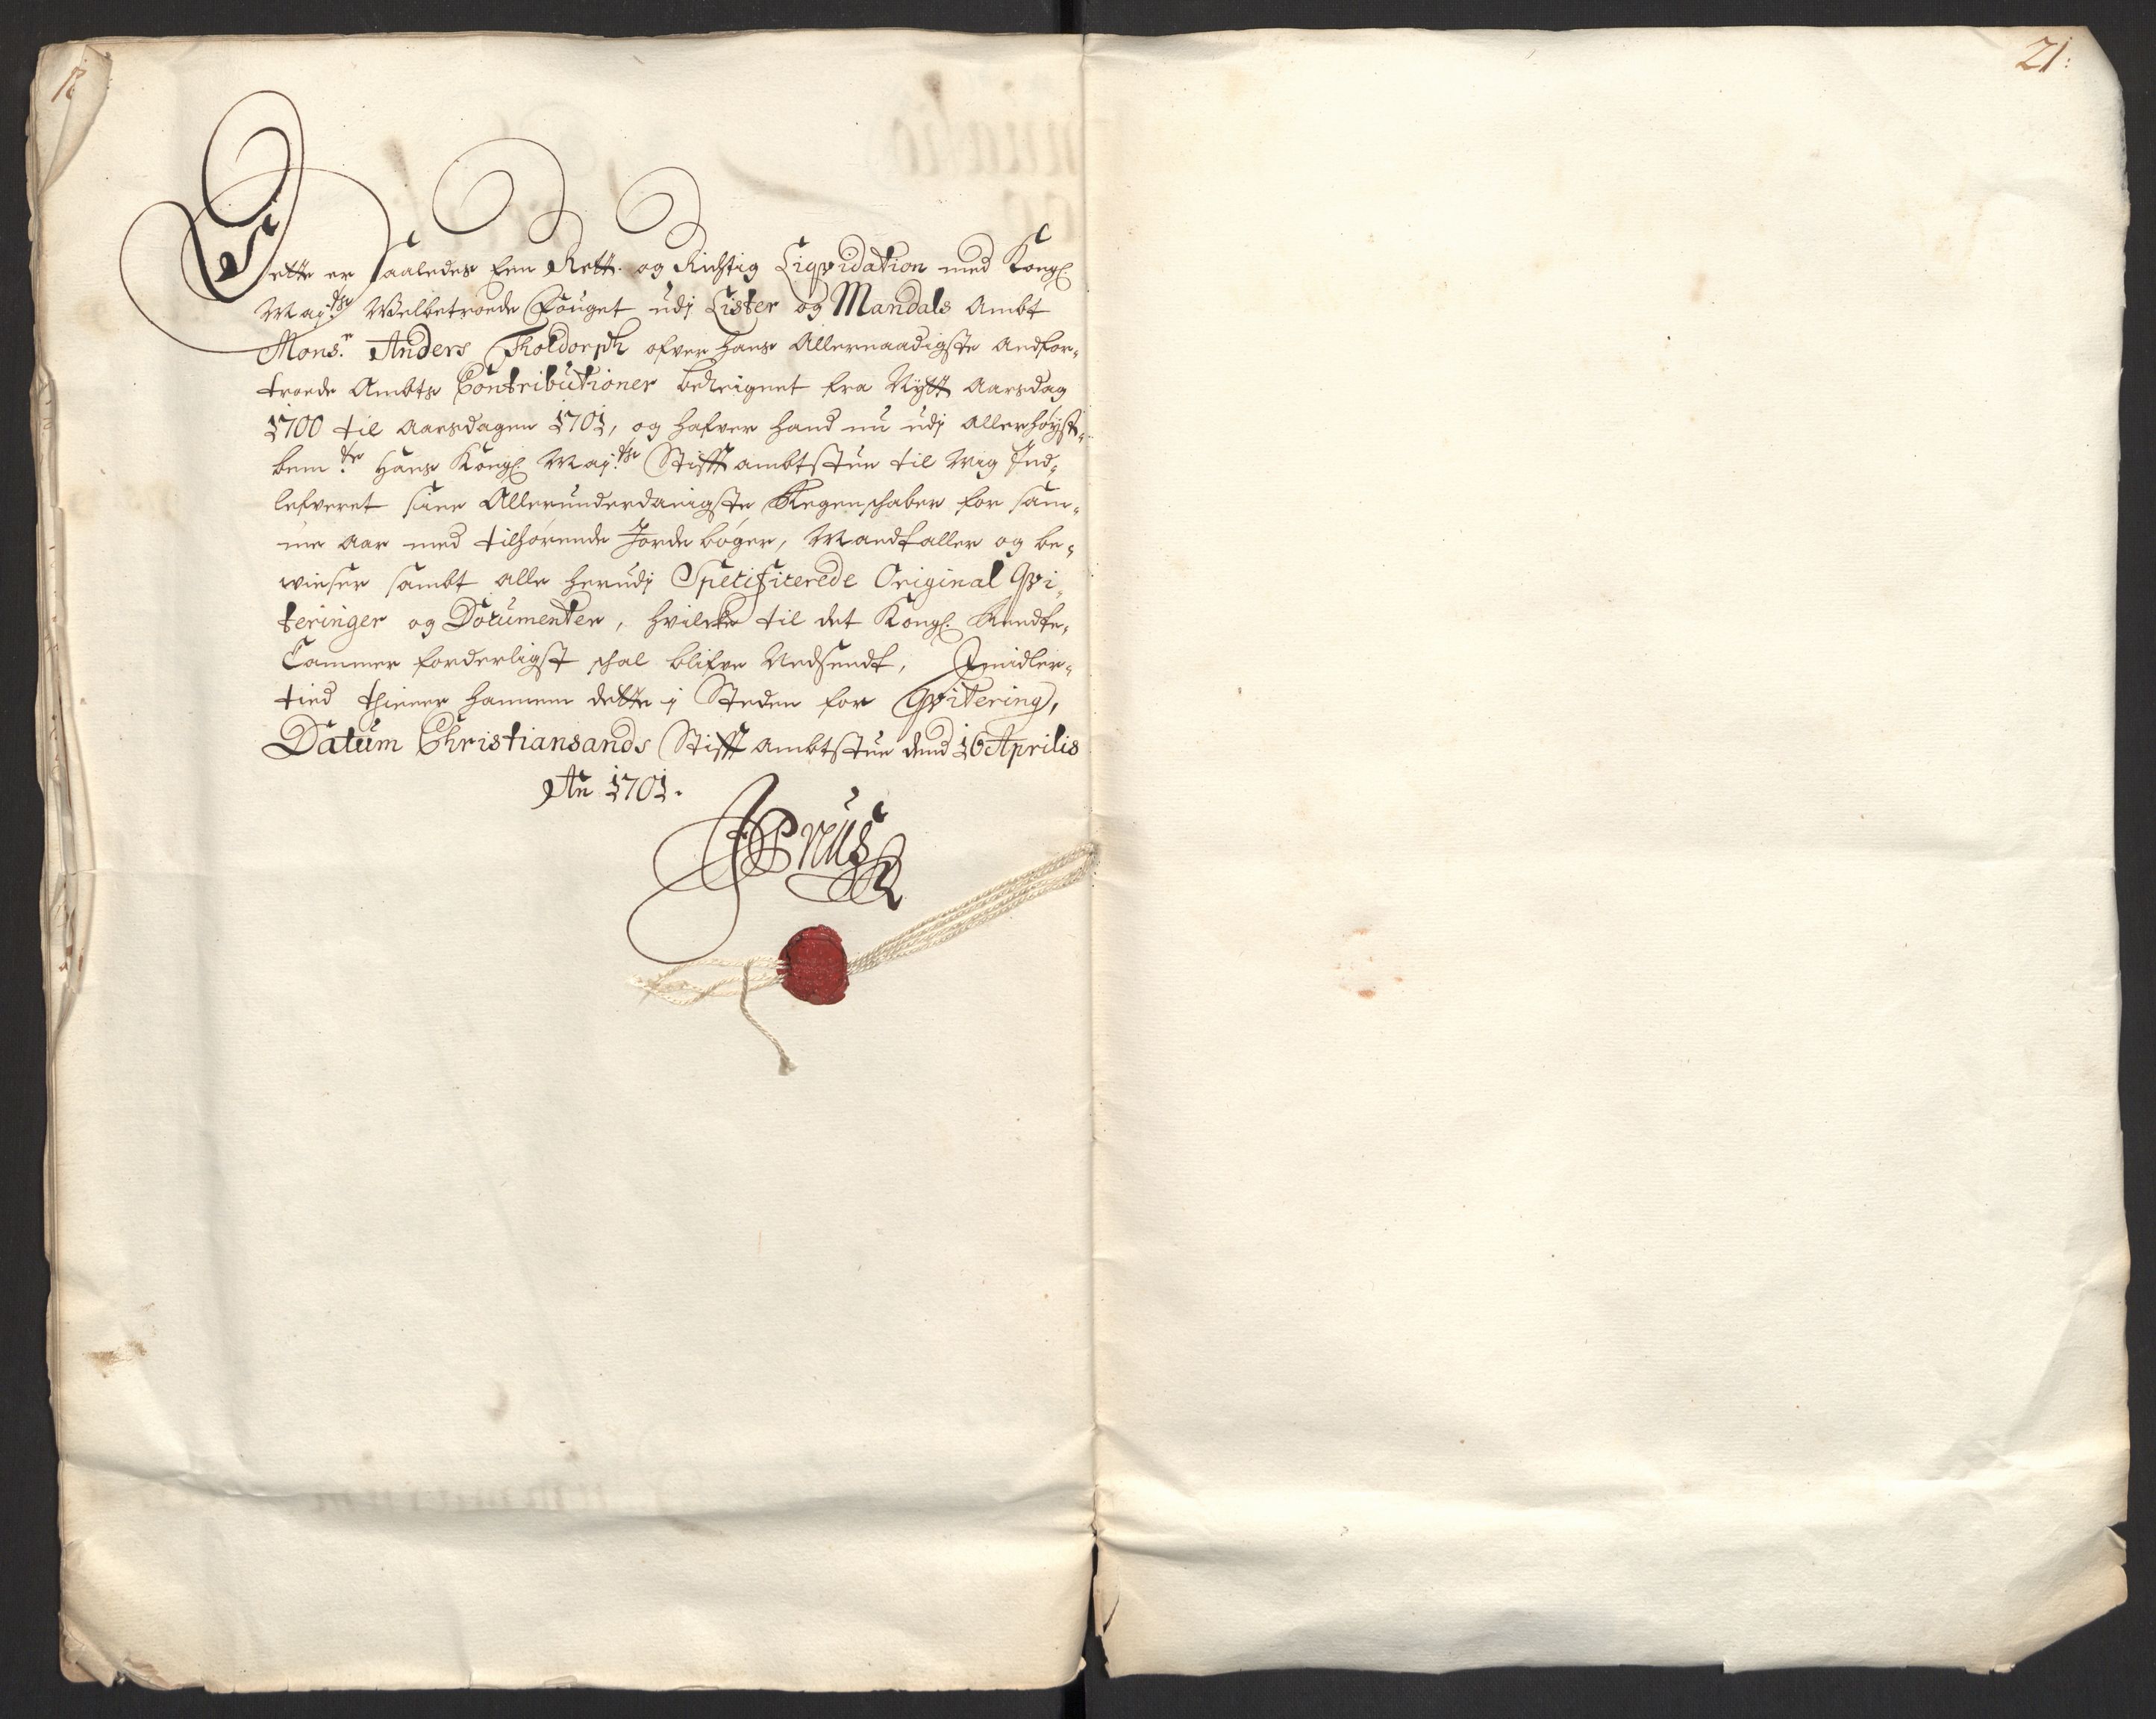 21:
Dette er saaledes Een Rett. og Richtig Liqvidation med Kongl:
May:ts Welbetroede Fouget udj Lister og Mandals Ambt
Mons:r Anders Tholdorph ofver hans Allernaadigste Anfor-
troede Ambts Contributioner beregnet fra Nytt Aarsdag
1700 til Aarsdagen 1701, og hafver hand nu udj Allerhøyst-
bem:te Hans Kongl: May:ts Stifftambtstue til Mig Ind-
lefveret sine Allerunderdanigste Regenschaber for sam-
me Aar med tilhørende Jordebøger, Mandtaller og be-
wiiser sambt alle herudj Specificerede Original Qvi-
teringer og Documenter, hvilcke til det Kongl: Rendte-
Cammer forderligst schal blifve Nedsendt, Imidler-
tied thiener hannem dette j Steden for Qvitering,
Datum Christiansands Stifft ambtstue dend 16 Aprilis
An 1701.